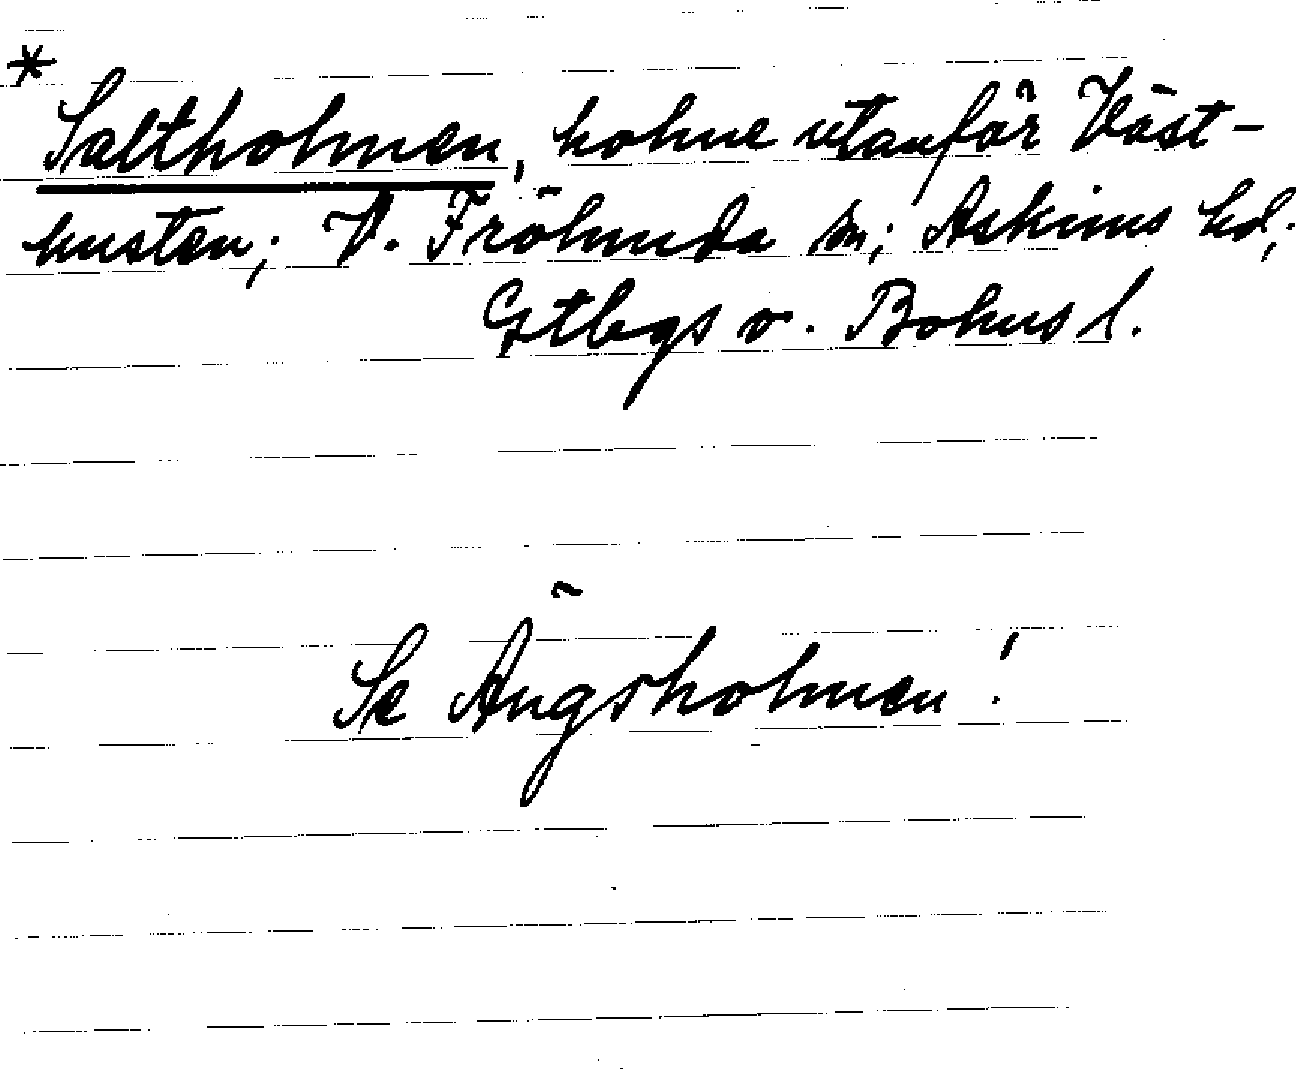 * Saltholmen, holme utanför Väst-
kusten; V. Frölunda sn; Askims hd;
Gtbgs o. Bohus l.
Se Ängsholmen!